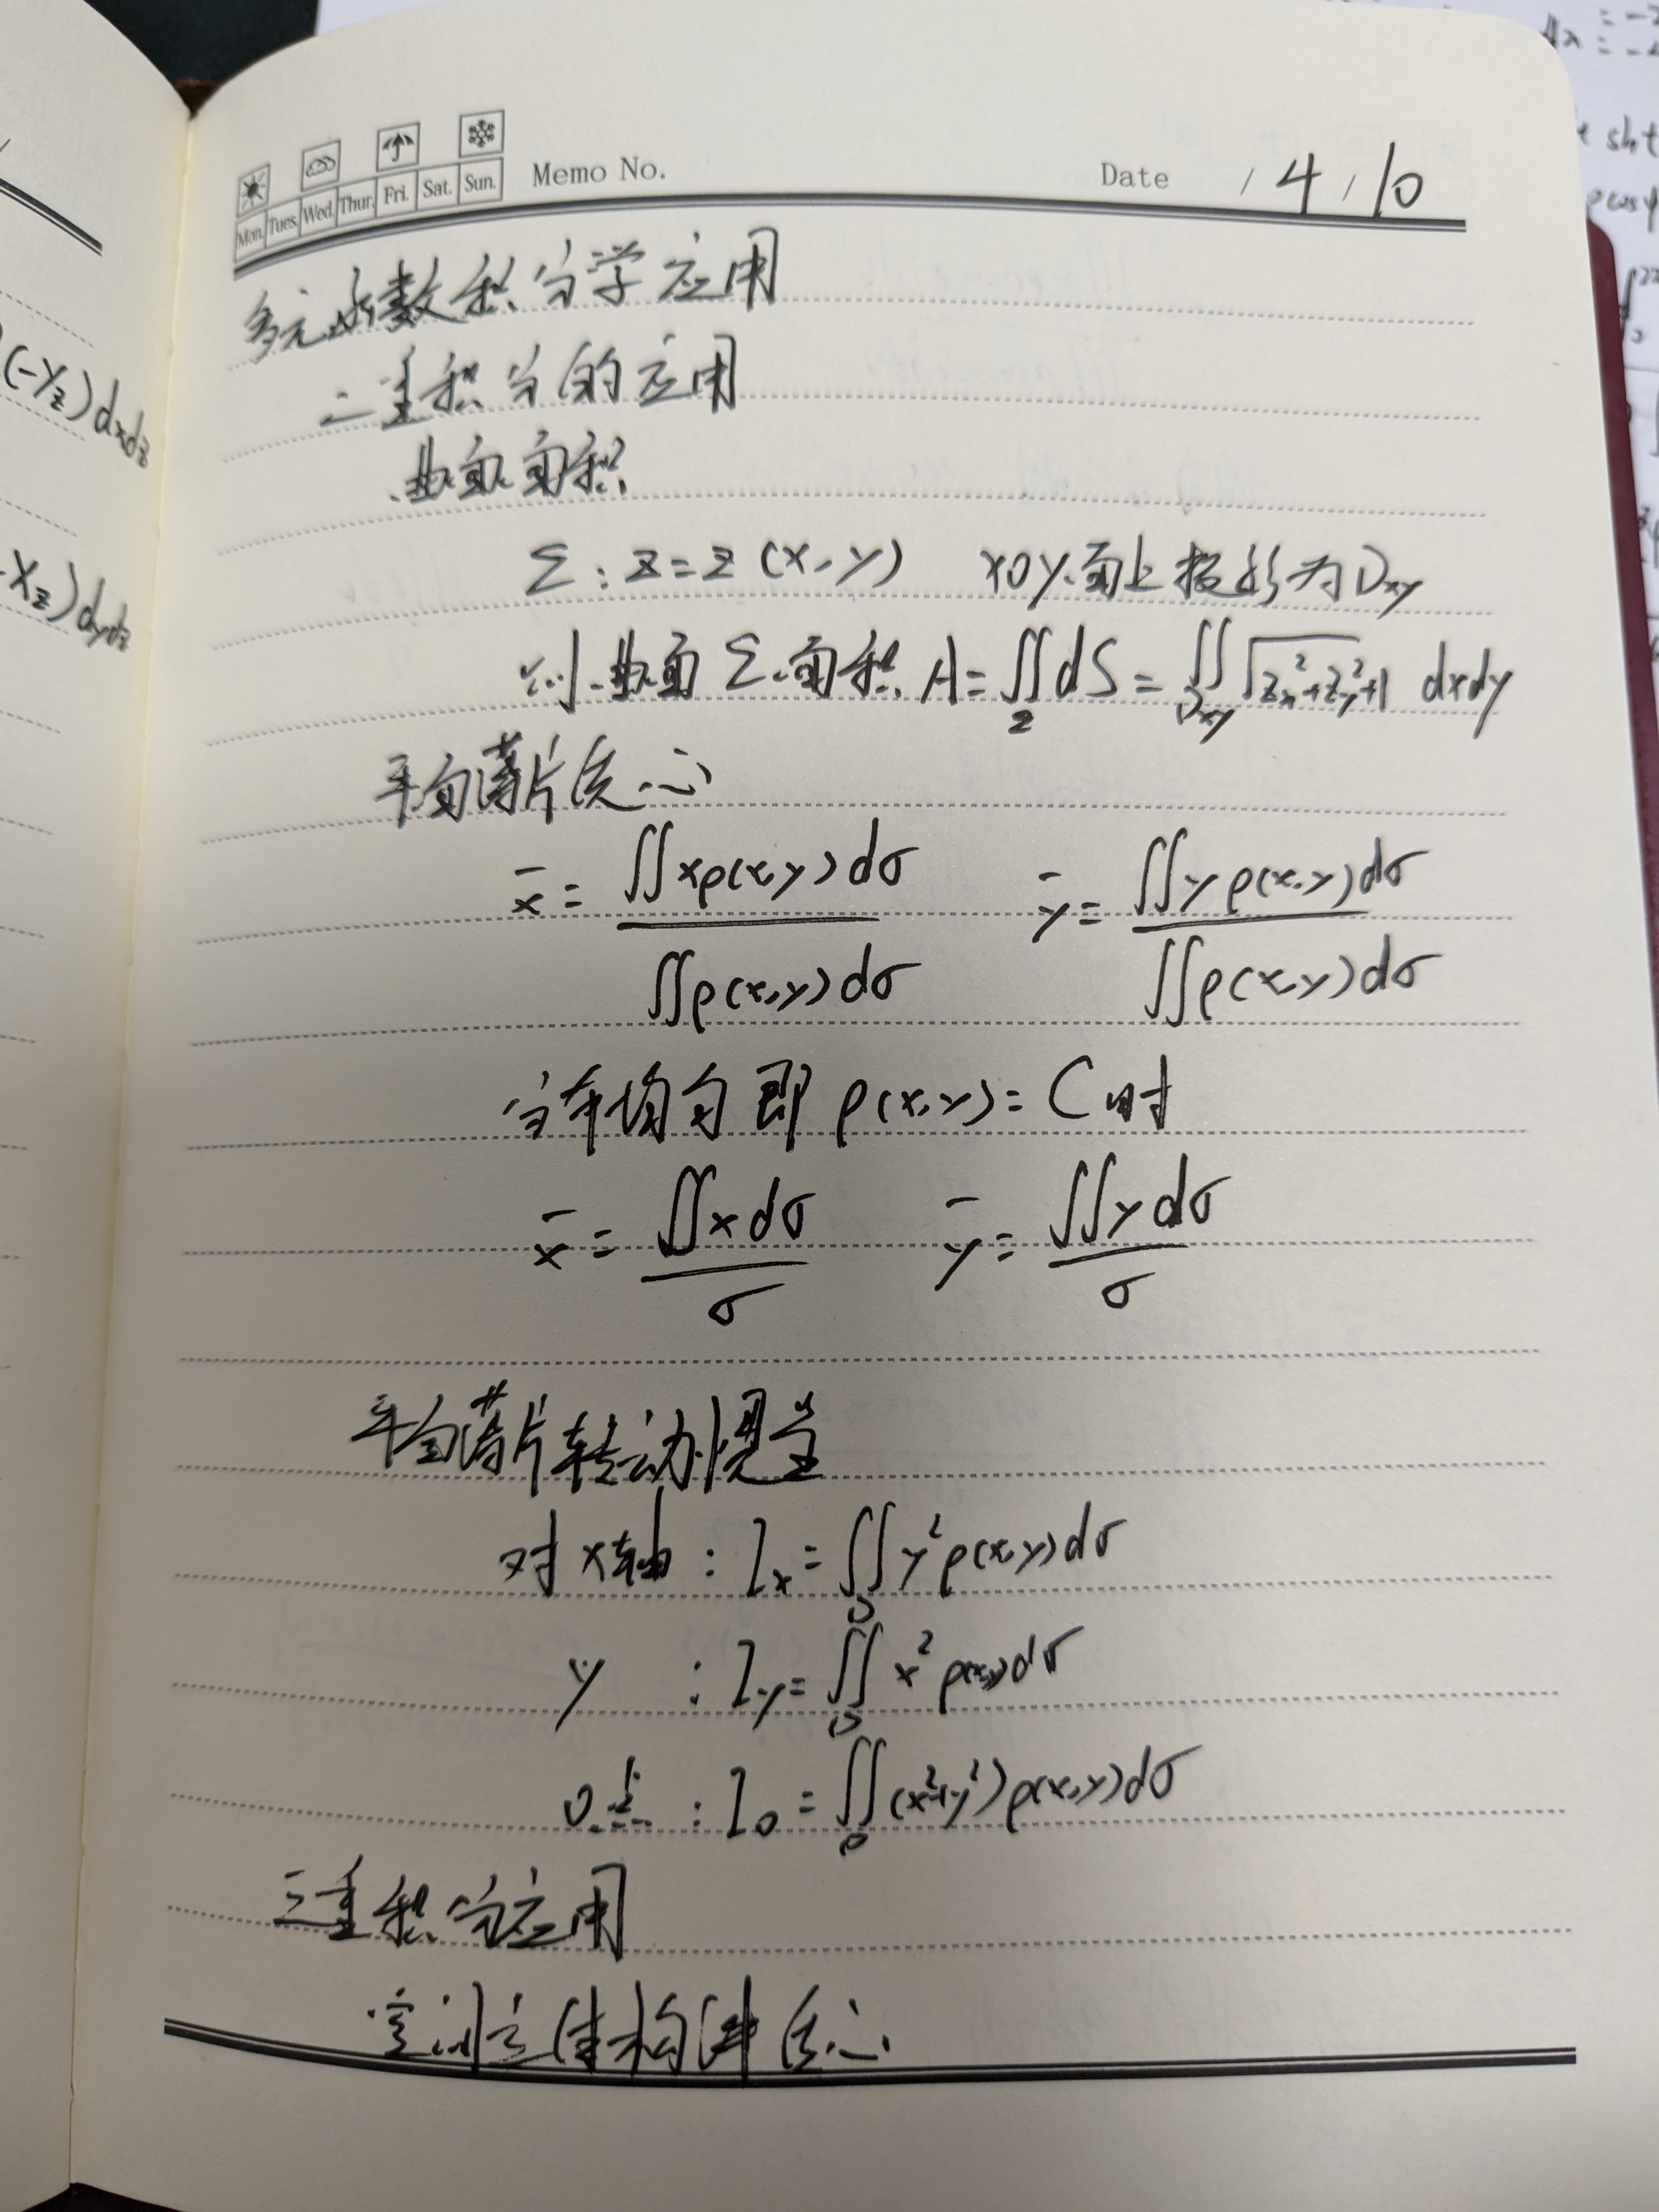 Mon. Tues. Wed. Thur. Fri. Sat. Sun. Memo No. Date / 4 / 10
多元函数积分学应用
二重积分的应用
曲面面积
Σ : z = z (x, y) xoy面上投影为Dxy
则曲面Σ面积 A = ∬_Σ dS = ∬_Dxy √(zx²+zy²+1) dxdy
平面薄片质心
x̄ = ∬xρ(x,y)dσ / ∬ρ(x,y)dσ ȳ = ∬yρ(x,y)dσ / ∬ρ(x,y)dσ
分布均匀即 ρ(x,y) = C时
x̄ = ∬xdσ / σ ȳ = ∬ydσ / σ
平面薄片转动惯量
对x轴 : Ix = ∬_D y²ρ(x,y)dσ
y : Iy = ∬_D x²ρ(x,y)dσ
O点 : I₀ = ∬_D (x²+y²)ρ(x,y)dσ
三重积分应用
空间立体构件质心
(-yz)dxdz
-xz)dydz